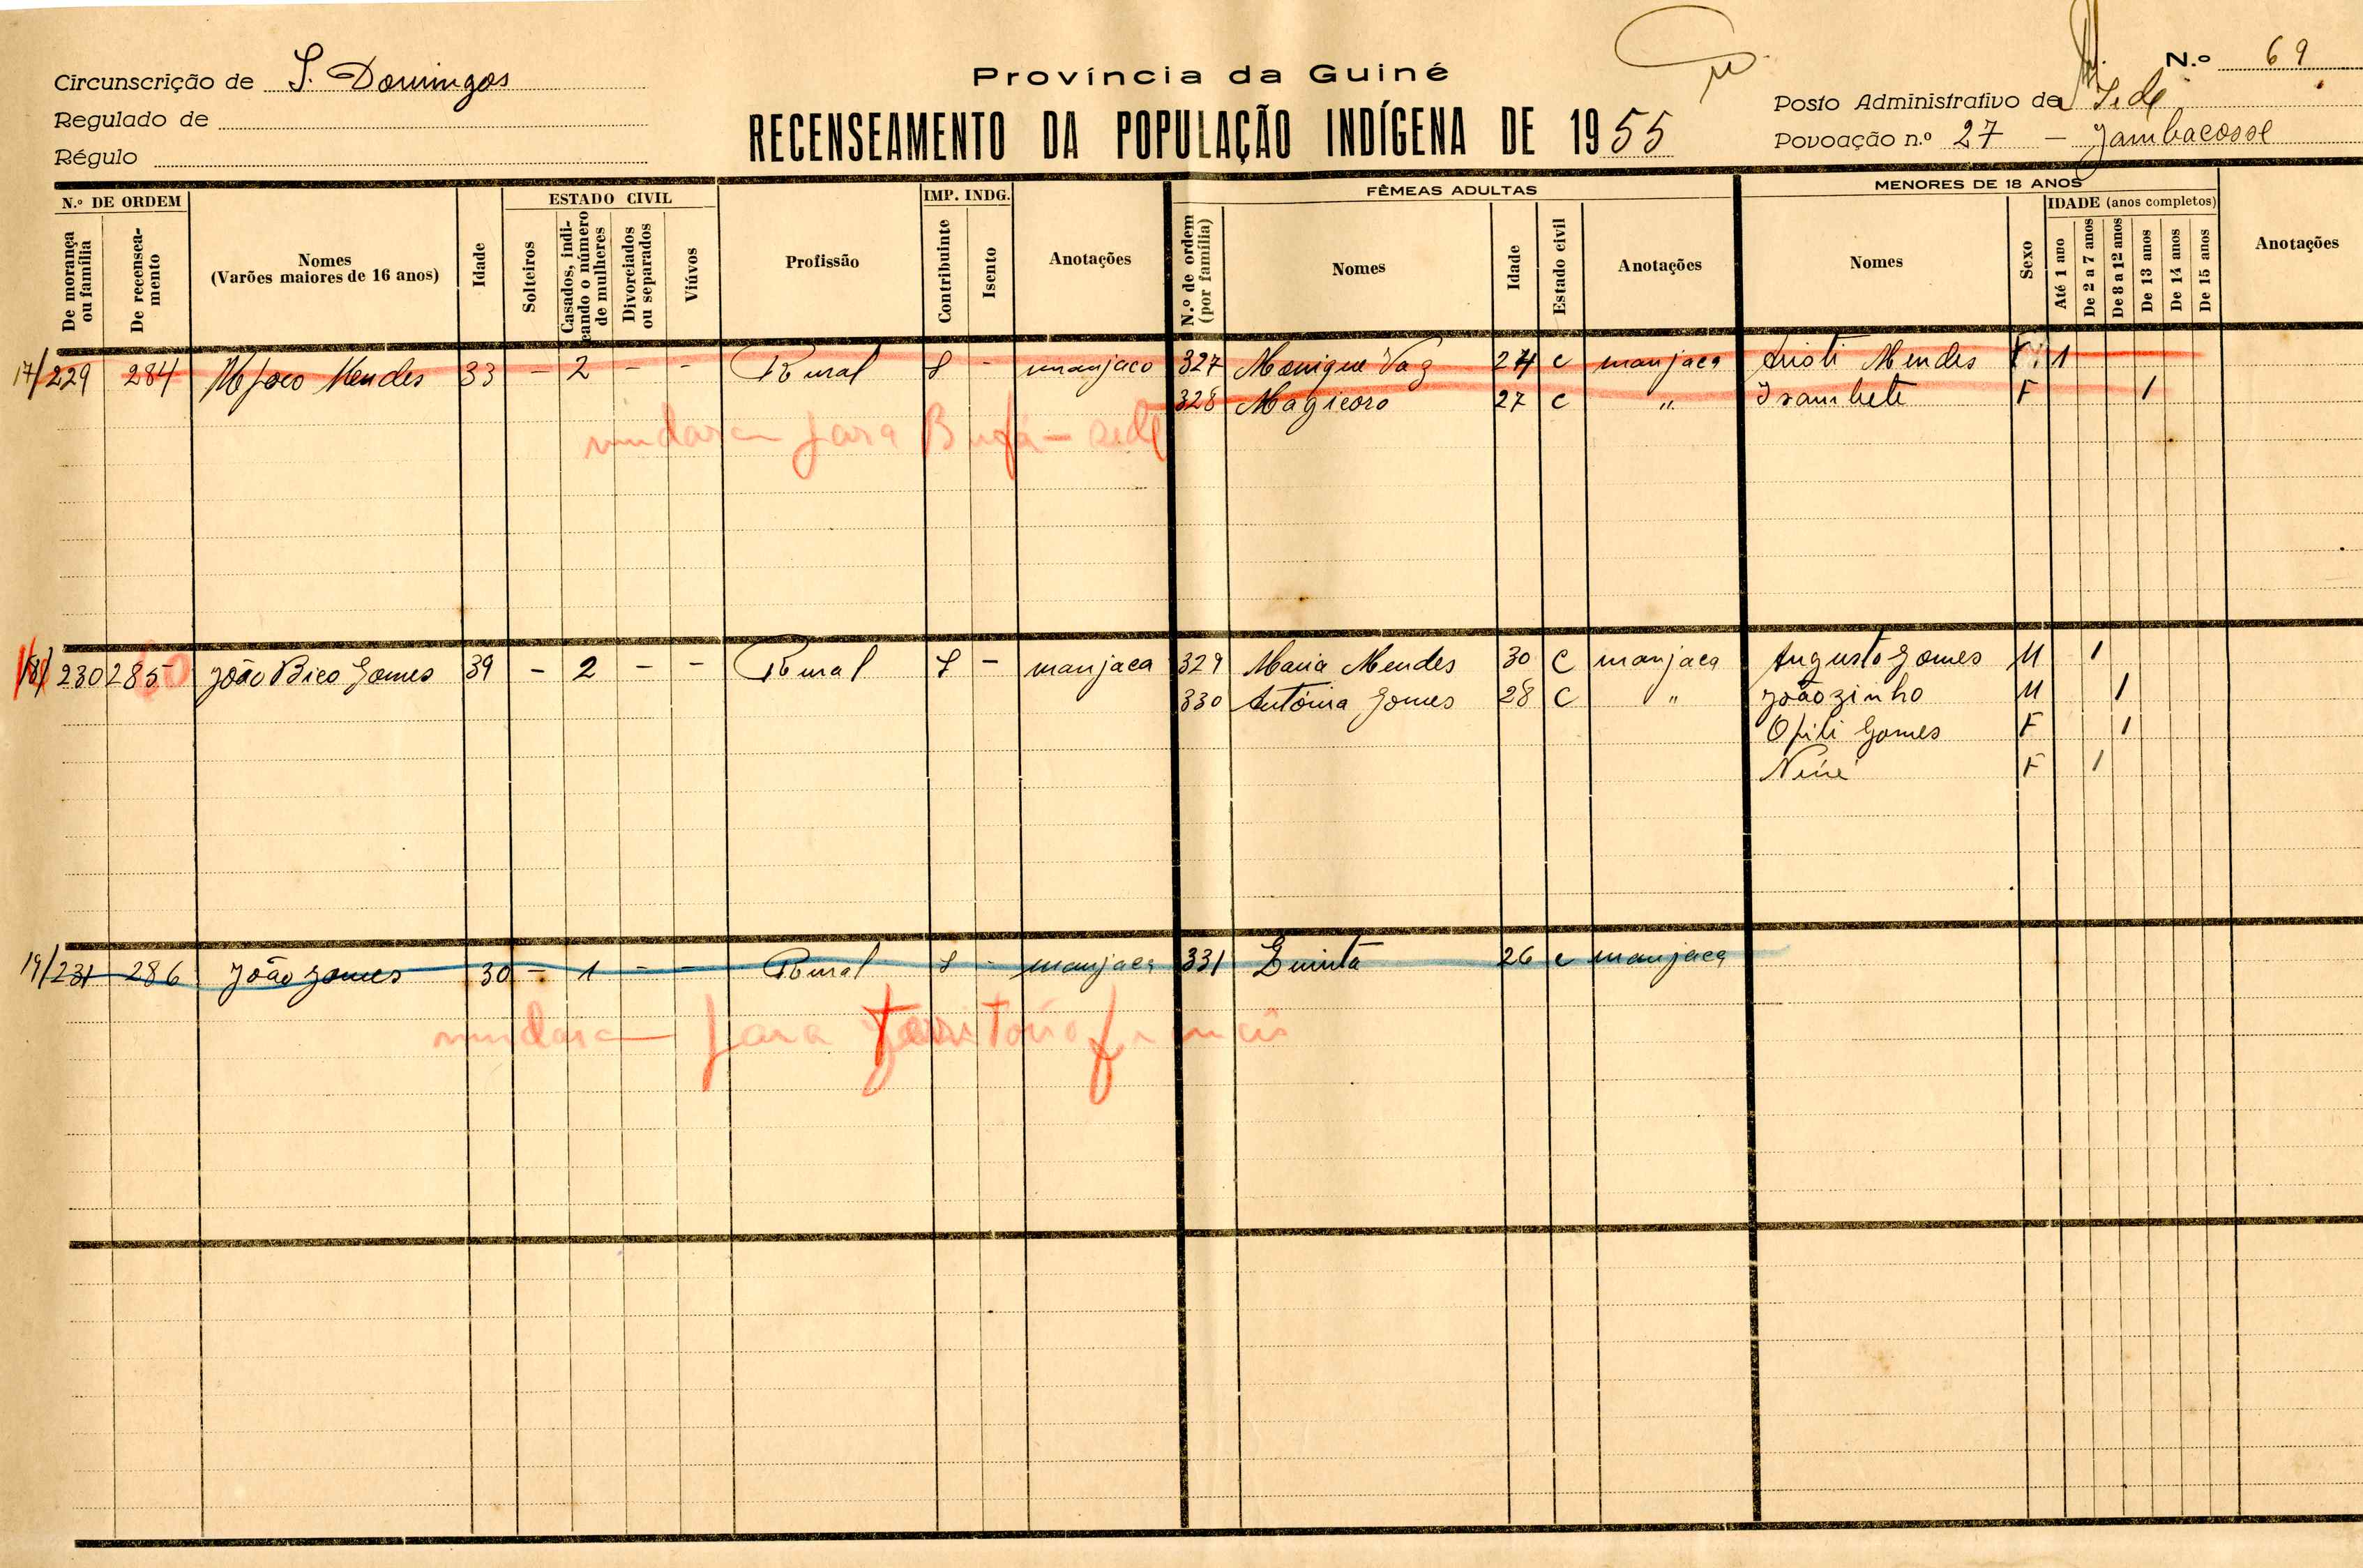 Província da Guiné
N.º 69
Circunscrição de S. Domingos
Posto Administrativo da Sede
Regulado de
RECENSEAMENTO DA POPULAÇÃO INDÍGENA DE 1955
Povoação n.º 27 — Jambacosse
Régulo
N.º DE ORDEM
De morança ou família
De recenseamento
Nomes
(Varões maiores de 16 anos)
Idade
ESTADO CIVIL
Solteiros
Casados, indicando o número de mulheres
Divorciados ou separados
Viúvos
Profissão
IMP. INDG.
Contribuinte
Isento
Anotações
FÊMEAS ADULTAS
N.º de ordem (por família)
Nomes
Idade
Estado civil
Anotações
MENORES DE 18 ANOS
Nomes
Sexo
IDADE (anos completos)
Até 1 ano
De 2 a 7 anos
De 8 a 12 anos
De 13 anos
De 14 anos
De 15 anos
Anotações
17/ 229 284 Mendes 33 - 2 - - Rural - manjaco 327 Monique Vaz 24 c manjaca Mendes 1
328 Magicoro 27 c " F 1
mudaram para - sede
18/ 230 285 João Bico Gomes 39 - 2 - - Rural - manjaca 329 Maria Mendes 30 C manjaca Augusto Gomes M 1
330 António Gomes 28 C " Joãozinho M 1
Gomes F 1
F 1
19/ 231 286 João Gomes 30 - 1 - - Rural - manjaca 331 26 c manjaca
mudaram para Território francês